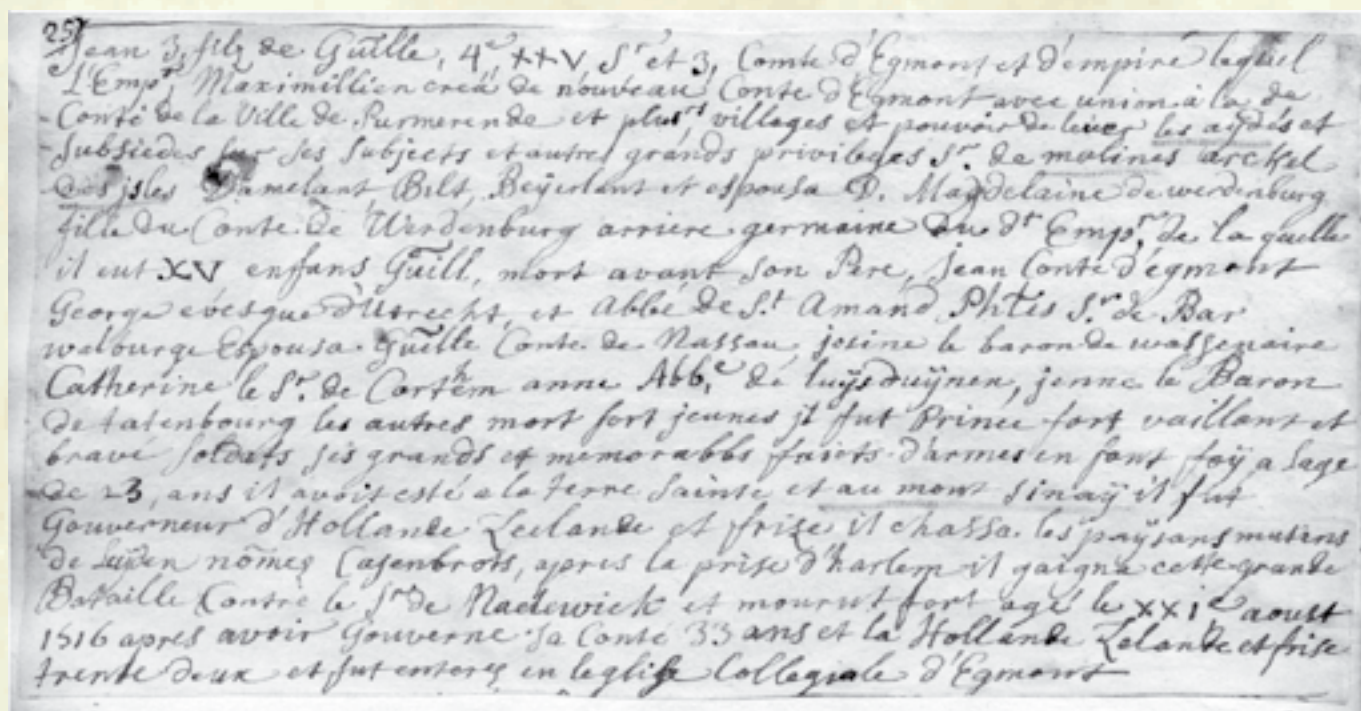 25
Jean 3, filz de Guille, 4e, XXV Sr et 3, Comte d'Egmont et d'empire lequel
L'Empr, Maximillien creá de nouveau Conte d'Egmont avec union à la de
Conté de la Ville de Purmerende et plusrs villages et pouvoir de lever les aydes et
Subsiedes sur ses Subjects et autres grands privileges Sr. de malines arckel
des isles Damelant, Bilt, Beÿerlant et espousa D. Magdelaine de werdenburg
fille du Conte de Werdenburg arriere germaine du dt Empr, de la quelle
il eut XV enffans Guill, mort avant son Pere, Jean Conte d'egmont
George evesque d'Utrecht, et Abbé de St Amand Phles Sr de Bar
walburge Espousa Guille Conte de Nassau, josine le baron de wassenaire
Catherine le Sr. de anne Abb,e de luÿsduÿnen, jenne le Baron
de tatenbourg les autres mort fort jeunes jl fut Prince fort vaillant et
bravé soldats ses grands et memorabbs faicts d'armes en font foÿ a lage
de 23, ans il avoit esté a la terre Sainte et au mont sinaÿ il fut
Gouverneur d'Hollande Zeelande et frise il chassa les paysans mutins
de nōmes Casenbrots, apres la prise d'harlem il gaigna cette grande
Bataille Contre le Sr de Naelewick et mourut fort agé le XXI,e aoust
1516 apres avoir Gouverne sa Conté 33 ans et la Hollande Zelande et frise
trente deux et fut enteres en leglise Collegiale d'Egmont